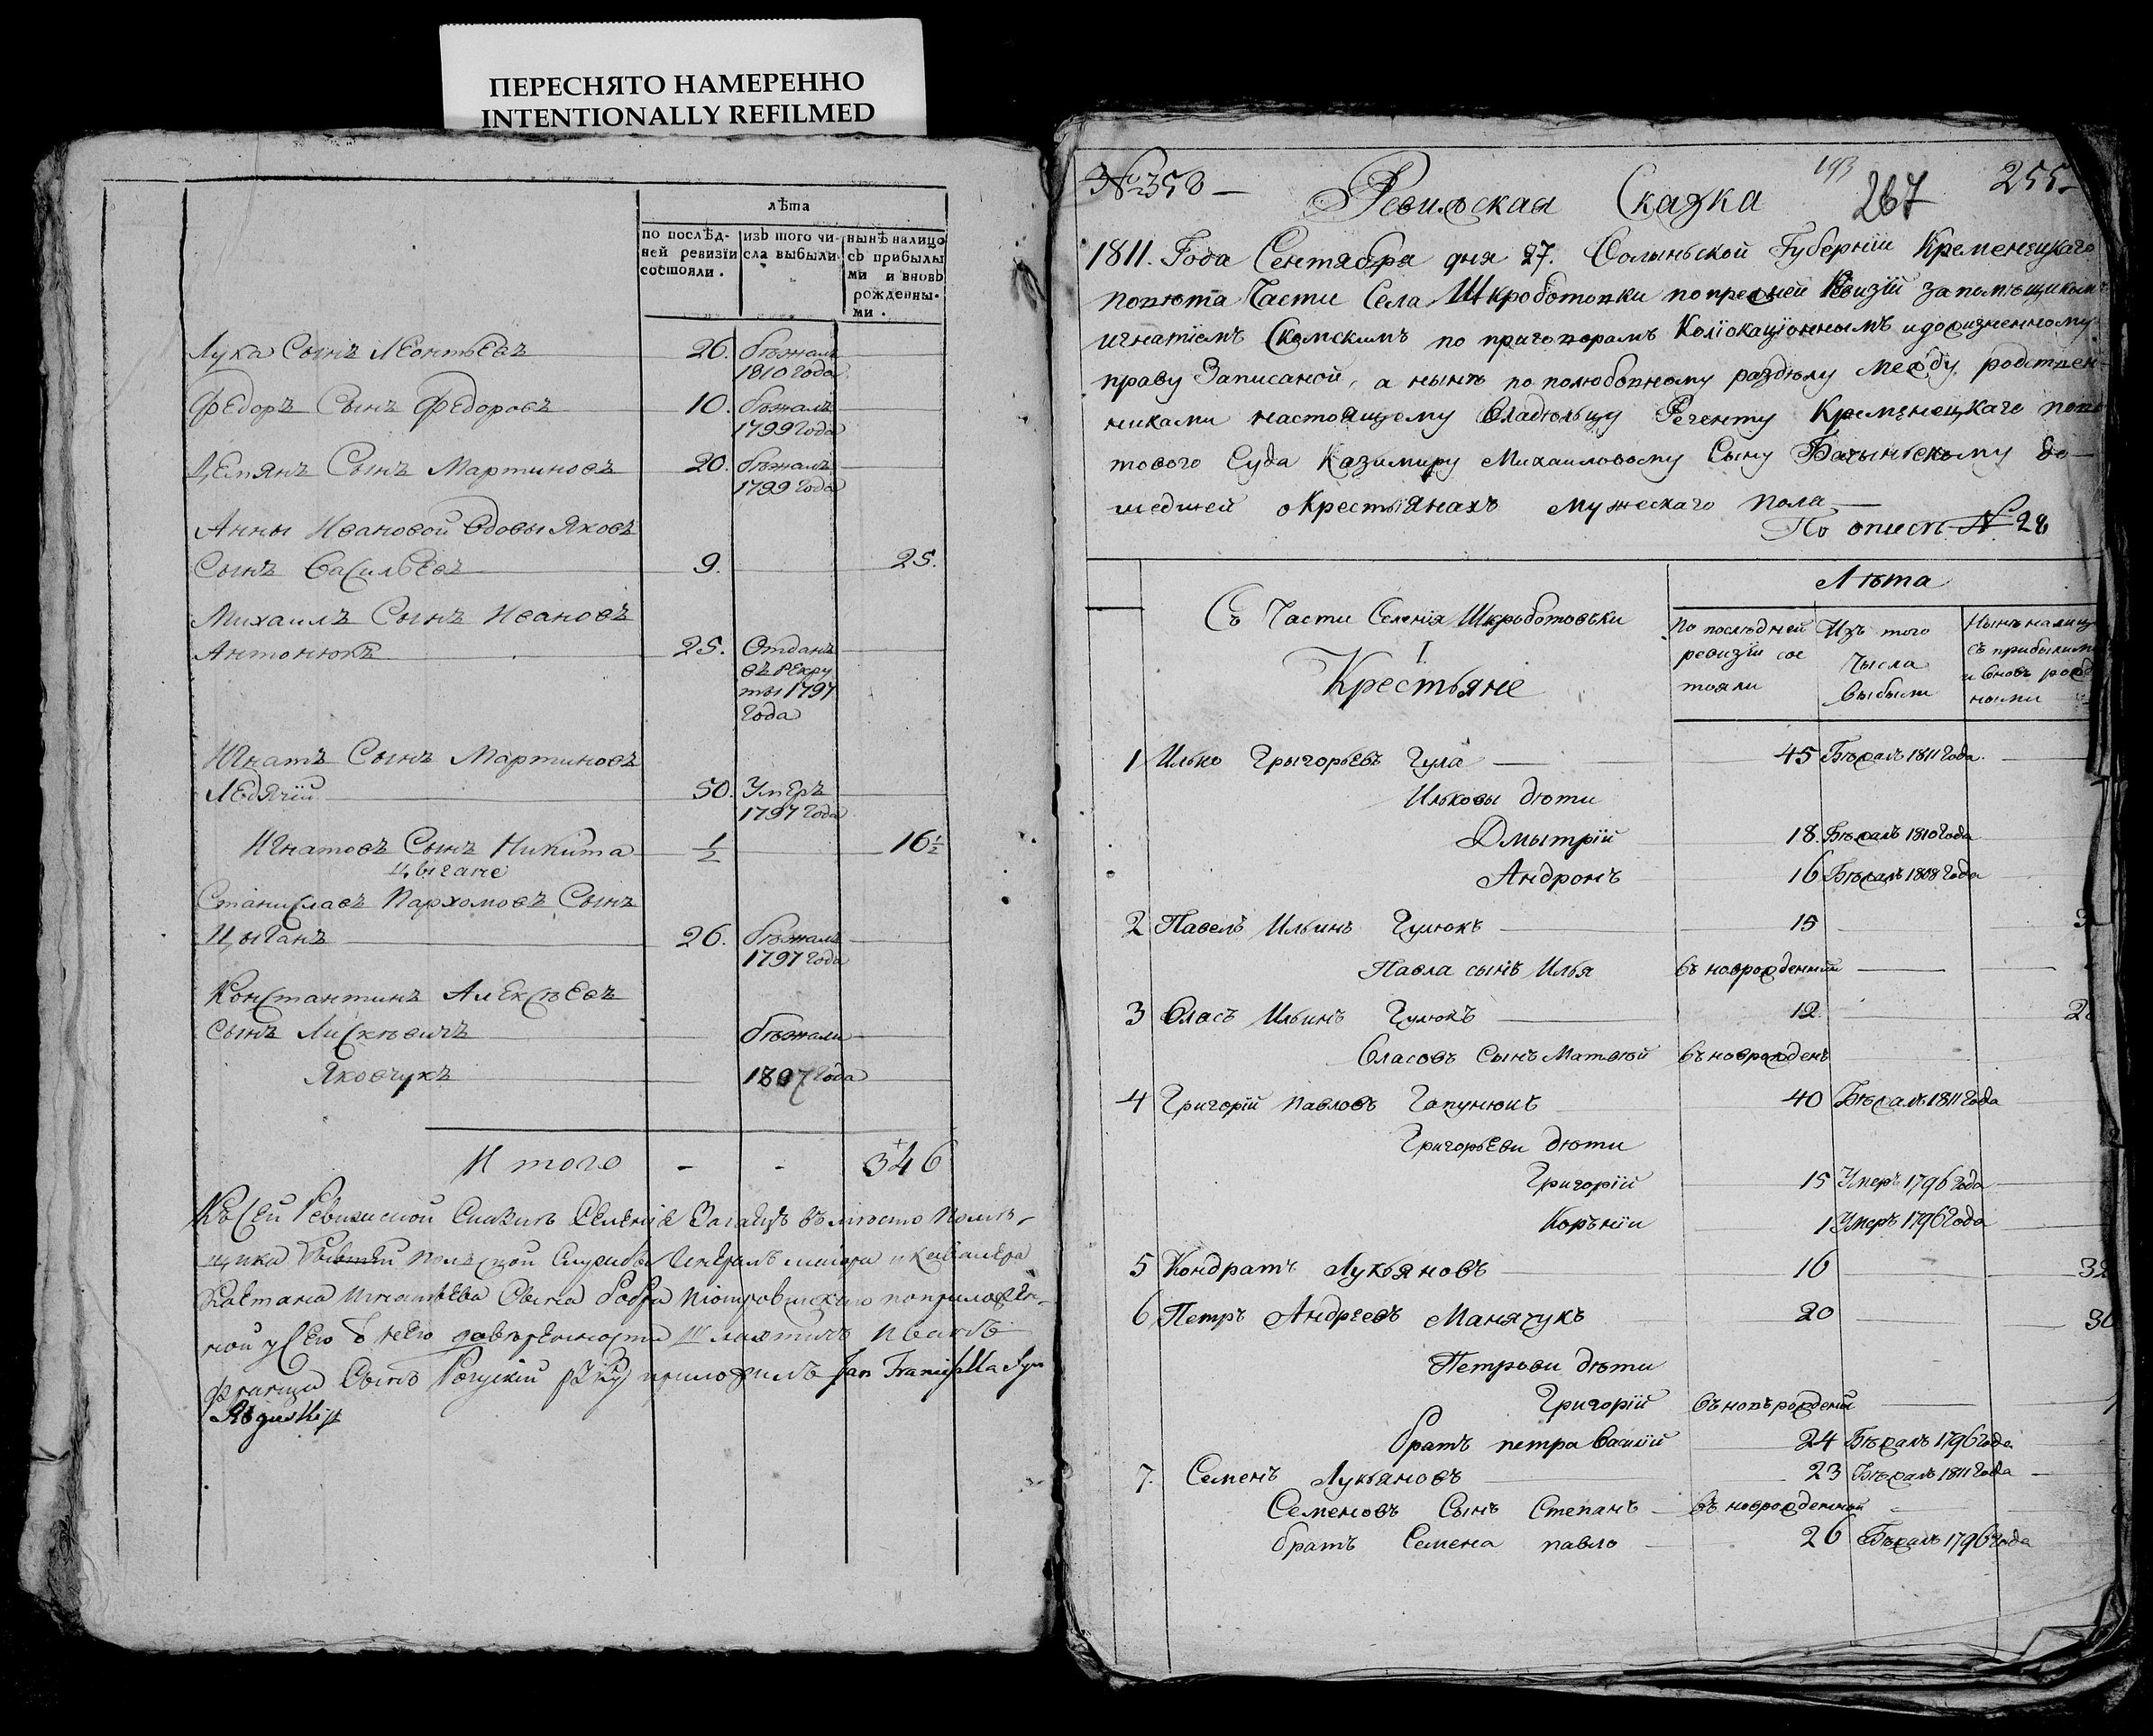 ПЕРЕСНЯТО НАМЕРЕННО
INTENTIONALLY REFILMED
лѣта
по послѣд-
ней ревизїи
состояли.
изъ того чи-
сла выбыли
нынѣ налицо
съ прибылы
ми и вновь
рожденны-
ми.
Лука Сынъ Леонтьевъ 26. бѣжалъ
1810 года
Федоръ Сынъ Федоровъ 10. бѣжалъ
1799 года
Демянъ Сынъ Мартиновъ 20. бѣжалъ
1799 года
Анны Ивановой вдовы Яковъ
Сынъ Васильевъ 9. 25.
Михаилъ Сынъ Ивановъ
Антонюкъ 25. Отданъ
въ рекру
ты 1797
года
Игнатъ Сынъ Мартиновъ
Ледячїй 50. Умеръ
1797 года
Игнатовъ Сынъ Никита 1/2 16 1/2
Цыгане
Станиславъ Пархомовъ Сынъ
Цыганъ 26. бѣжалъ
1797 года
Константинъ Алексѣевъ
сынъ Лискѣвичъ бѣжали
Яковчукъ 1807 года
Итого - - 346
Къ сей Ревизской Сказкѣ Селенїя въ мѣсто помѣ-
щика польской службы Генералъ маїора и кавалера
Каетана Игнатьева Сына Піотровицкаго по приложен-
ной у сего от него довѣренности Иванъ
Франца Сынъ Рогускій руку приложилъ Jan Franciszka Syn
Roguski
№ 358 — Ревизская Сказка 193 267 255
1811. Года Сентября дня 27. Волыньской Губернїи Кременецкаго
повѣта Части Села Шкроботовки по прежней Ревизїи за помѣщикомъ
игнатїемъ Скамскимъ по приговорамъ Колїокацїоннымъ и дожизненному
праву Записаной, а нынѣ по полюбовному раздѣлу между родствен-
никами настоящему владѣльцу Регенту Кременецкаго пове
тового Суда Казимиру Михаиловому Сыну Бачыньскому до-
шедшей о Крестьянахъ мужескаго пола
По описи № 28
Съ Части Селенїя Шкроботовъки
I.
Крестьяне
Лѣта
По послѣдней
ревизїи сос
тояли
Изъ того
Числа
Выбыли
Нынѣ на лицо
съ прибылими
и вновь рожд
ными
1 Илько Грыгорьевъ Гула 45 Бѣжалъ 1811 Года
Ильковы дѣти
Дмытрїй 18. Бѣжалъ 1810 Года
Андронъ 16 Бѣжалъ 1808 Года
2 Павелъ Ильинъ Гулюкъ 15 3
Павла сынъ Илья въ новрожденный
3 Власъ Ильинъ Гулюкъ 12. 2
Власовъ Сынъ Матвѣй въ новрожденъ
4 Григорїй Павловъ Гапунюкъ 40 Бѣжалъ 1811 Года
Григорьеви дѣти
Григорїй 15 Умеръ 1796 Года
Коръніи 1 Умеръ 1796 Года
5 Кондратъ Лукьяновъ 16 32
6 Петръ Андреевъ Манячукъ 20 36
Петрови дѣти
Григорїй въ новъ рожденый
братъ петра василїй 24 Бѣжалъ 1796 Года
7. Семенъ Лукьяновъ 23 Бѣжалъ 1811 Года
Семеновъ Сынъ Степанъ въ новрожденной
братъ Семена павло 26 Бѣжалъ 1796 Года